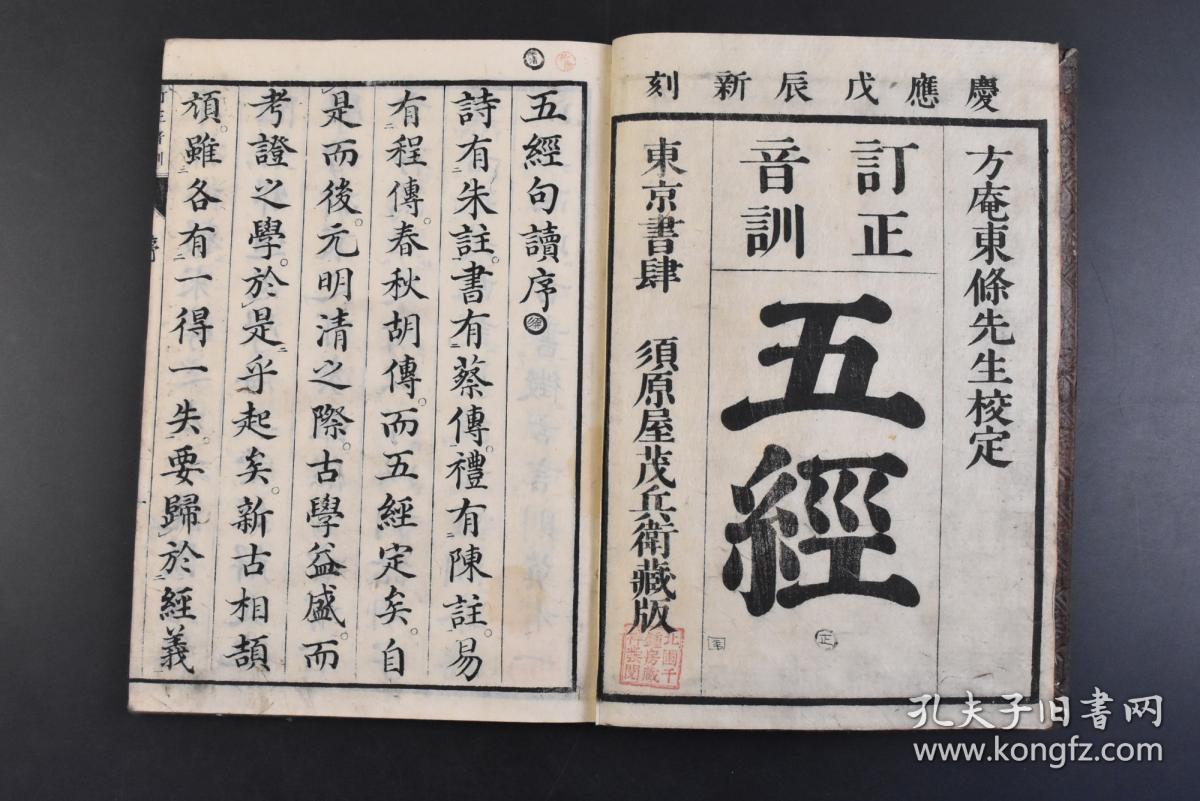 慶應戊辰新刻
方庵東條先生校定
訂正
音訓
五經
東京書肆 須原屋茂兵衛藏版
正
五經句讀序
詩有朱註。書有蔡傳。禮有陳註。易
有程傳。春秋胡傳。而五經定矣。自
是而後。元明清之際。古學益盛。而
考證之學。於是乎起矣。新古相頡
頏。雖各有一得一失。要歸於經義
孔夫子旧书网
www.kongfz.com